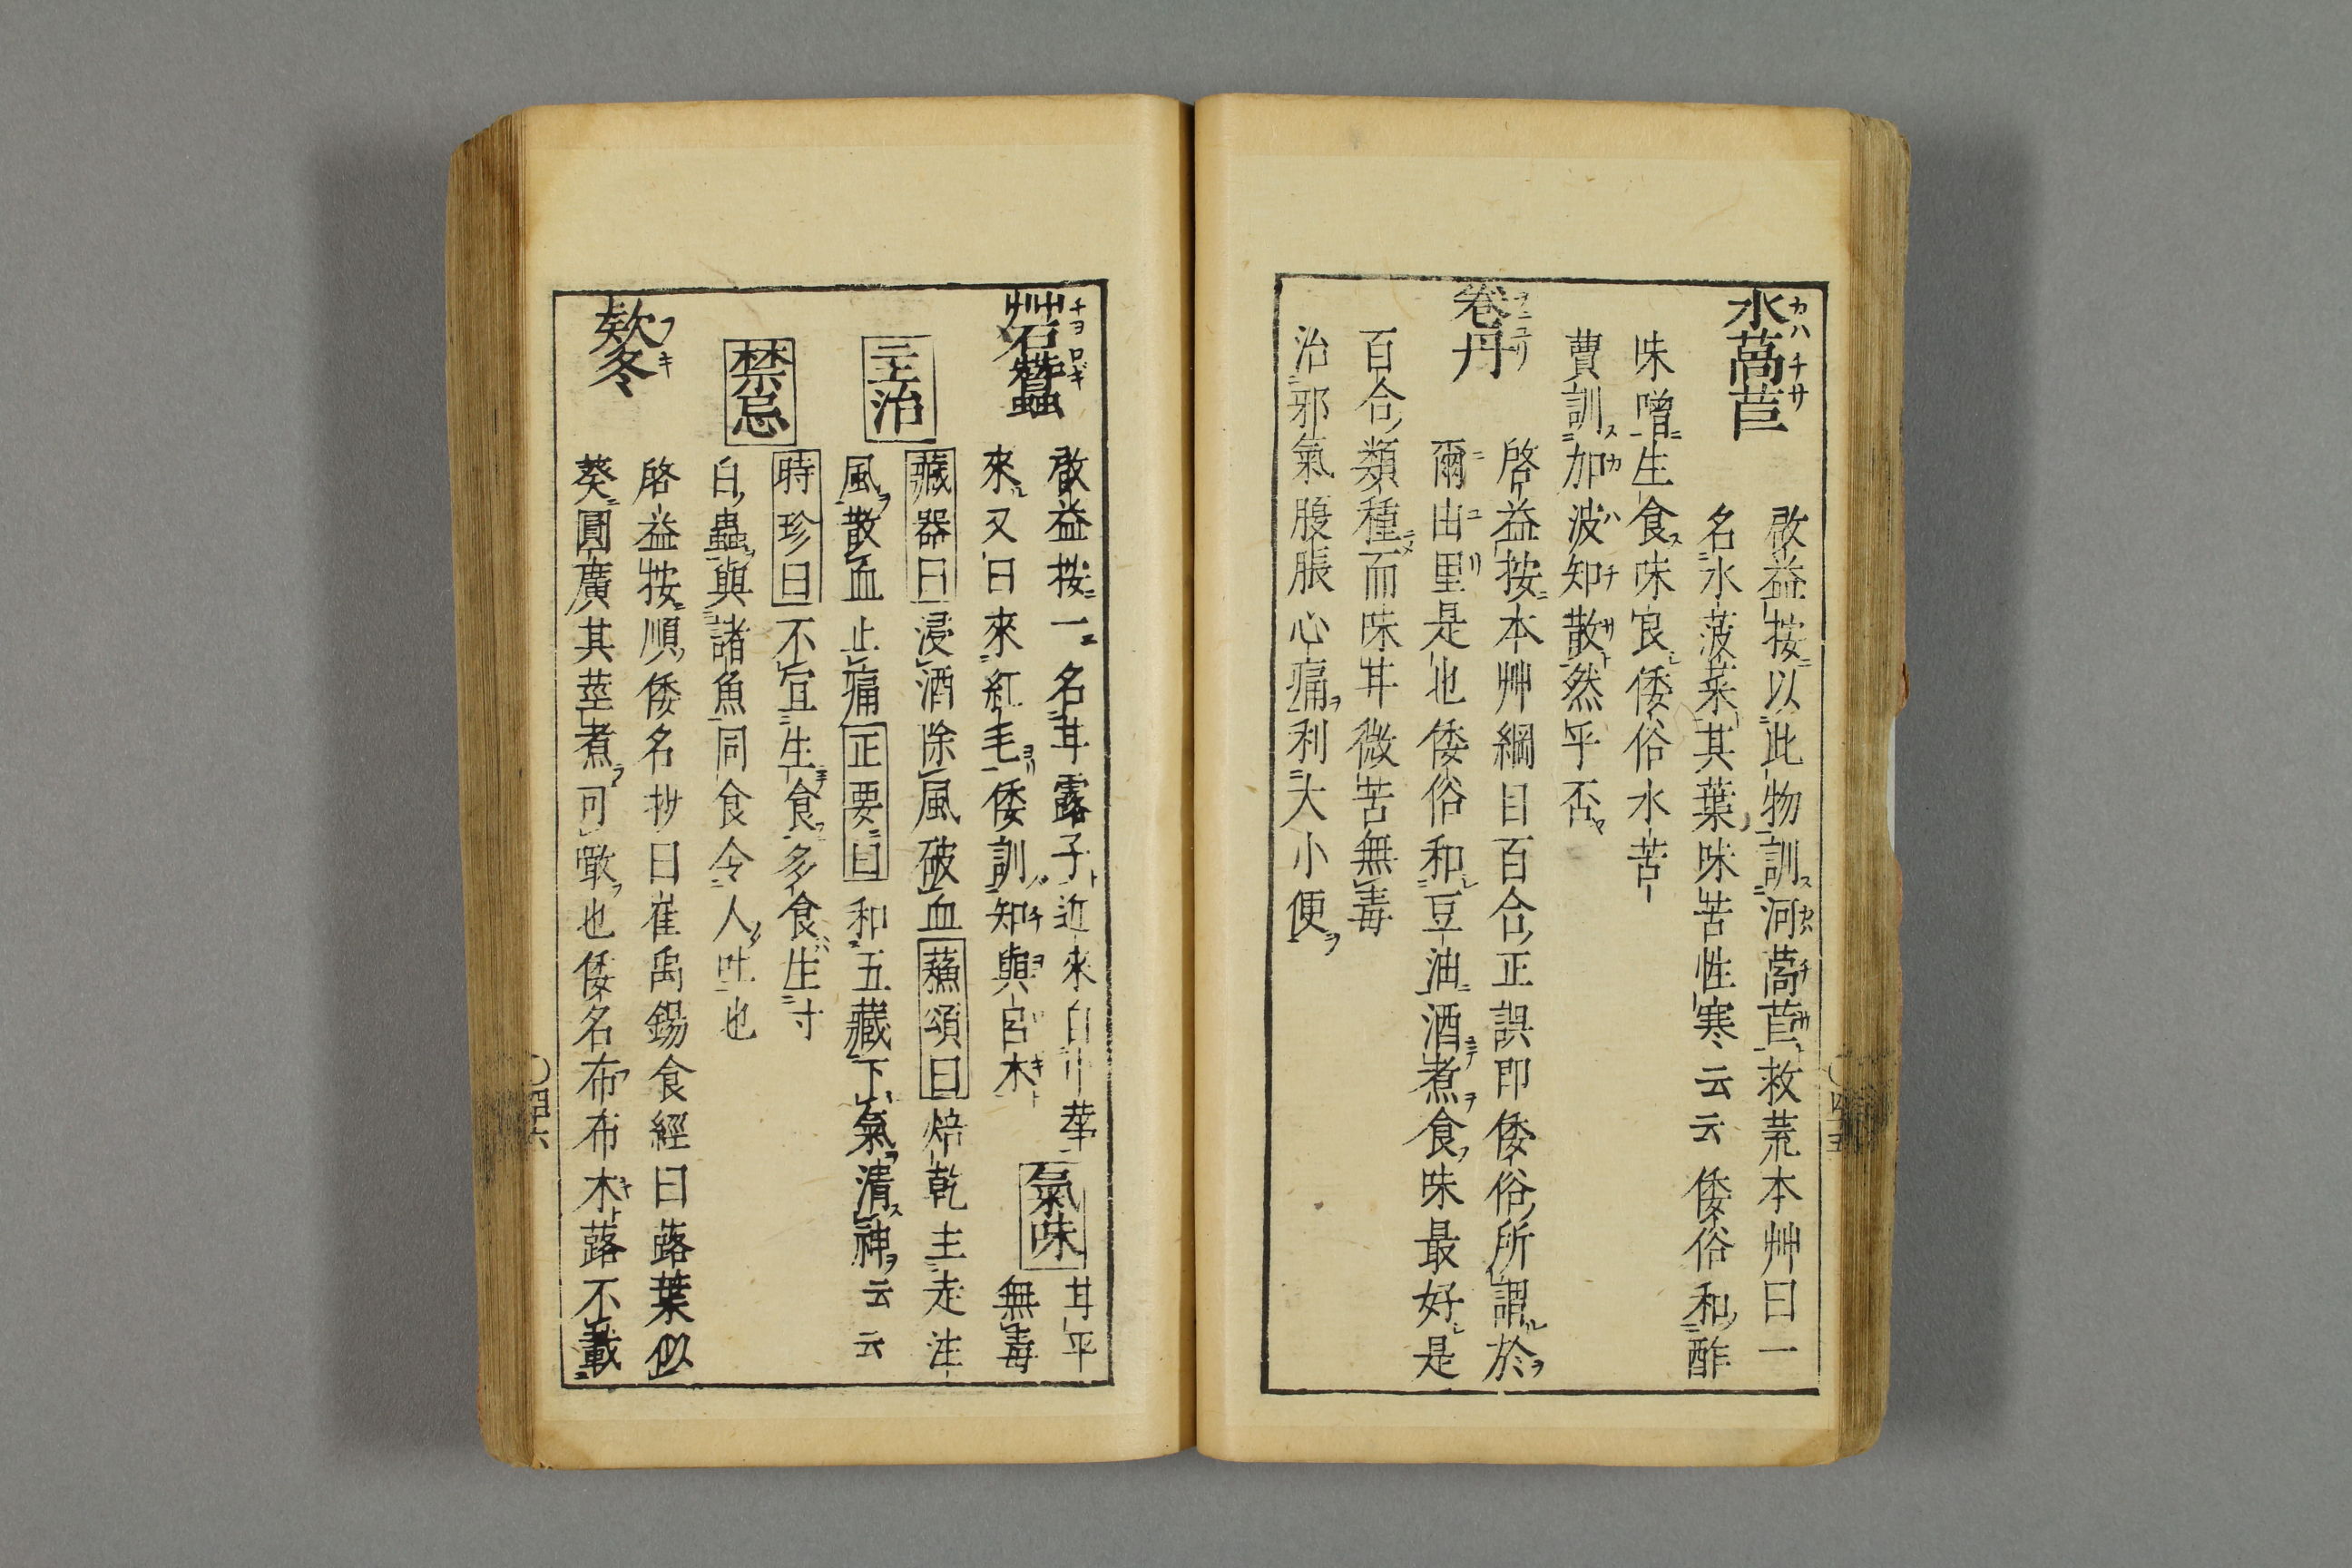 水萵苣 カハチサ
啓益按以此物訓河萵苣救荒本艸曰一
名水菠菜其葉味苦性寒云云倭俗和酢
味噌生食味良倭俗水苦
賣訓加波知散然乎否
卷丹 ヲニユリ
啓益按本艸綱目百合正誤即倭俗所謂於
爾由里是也倭俗和豆油酒煮食味最好是
百合類種而味甘微苦無毒
治邪氣腹脹心痛利大小便
四十五
草石蠶 チヨロギ
啓益按一名甘露子近來自中華
來又曰來紅毛倭訓知與呂木
氣味
甘平
無毒
主治
藏器曰浸酒除風破血蘇頌曰焙乾主走注
風散血止痛正要曰和五藏下氣清神云云
禁忌
時珍曰不宜生食多食生寸
白蟲與諸魚同食令人吐也
欵冬 フキ
啓益按順倭名抄曰崔禹錫食經曰蕗葉似
葵圓廣其莖煮可噉也倭名布布木蕗不載
四十六